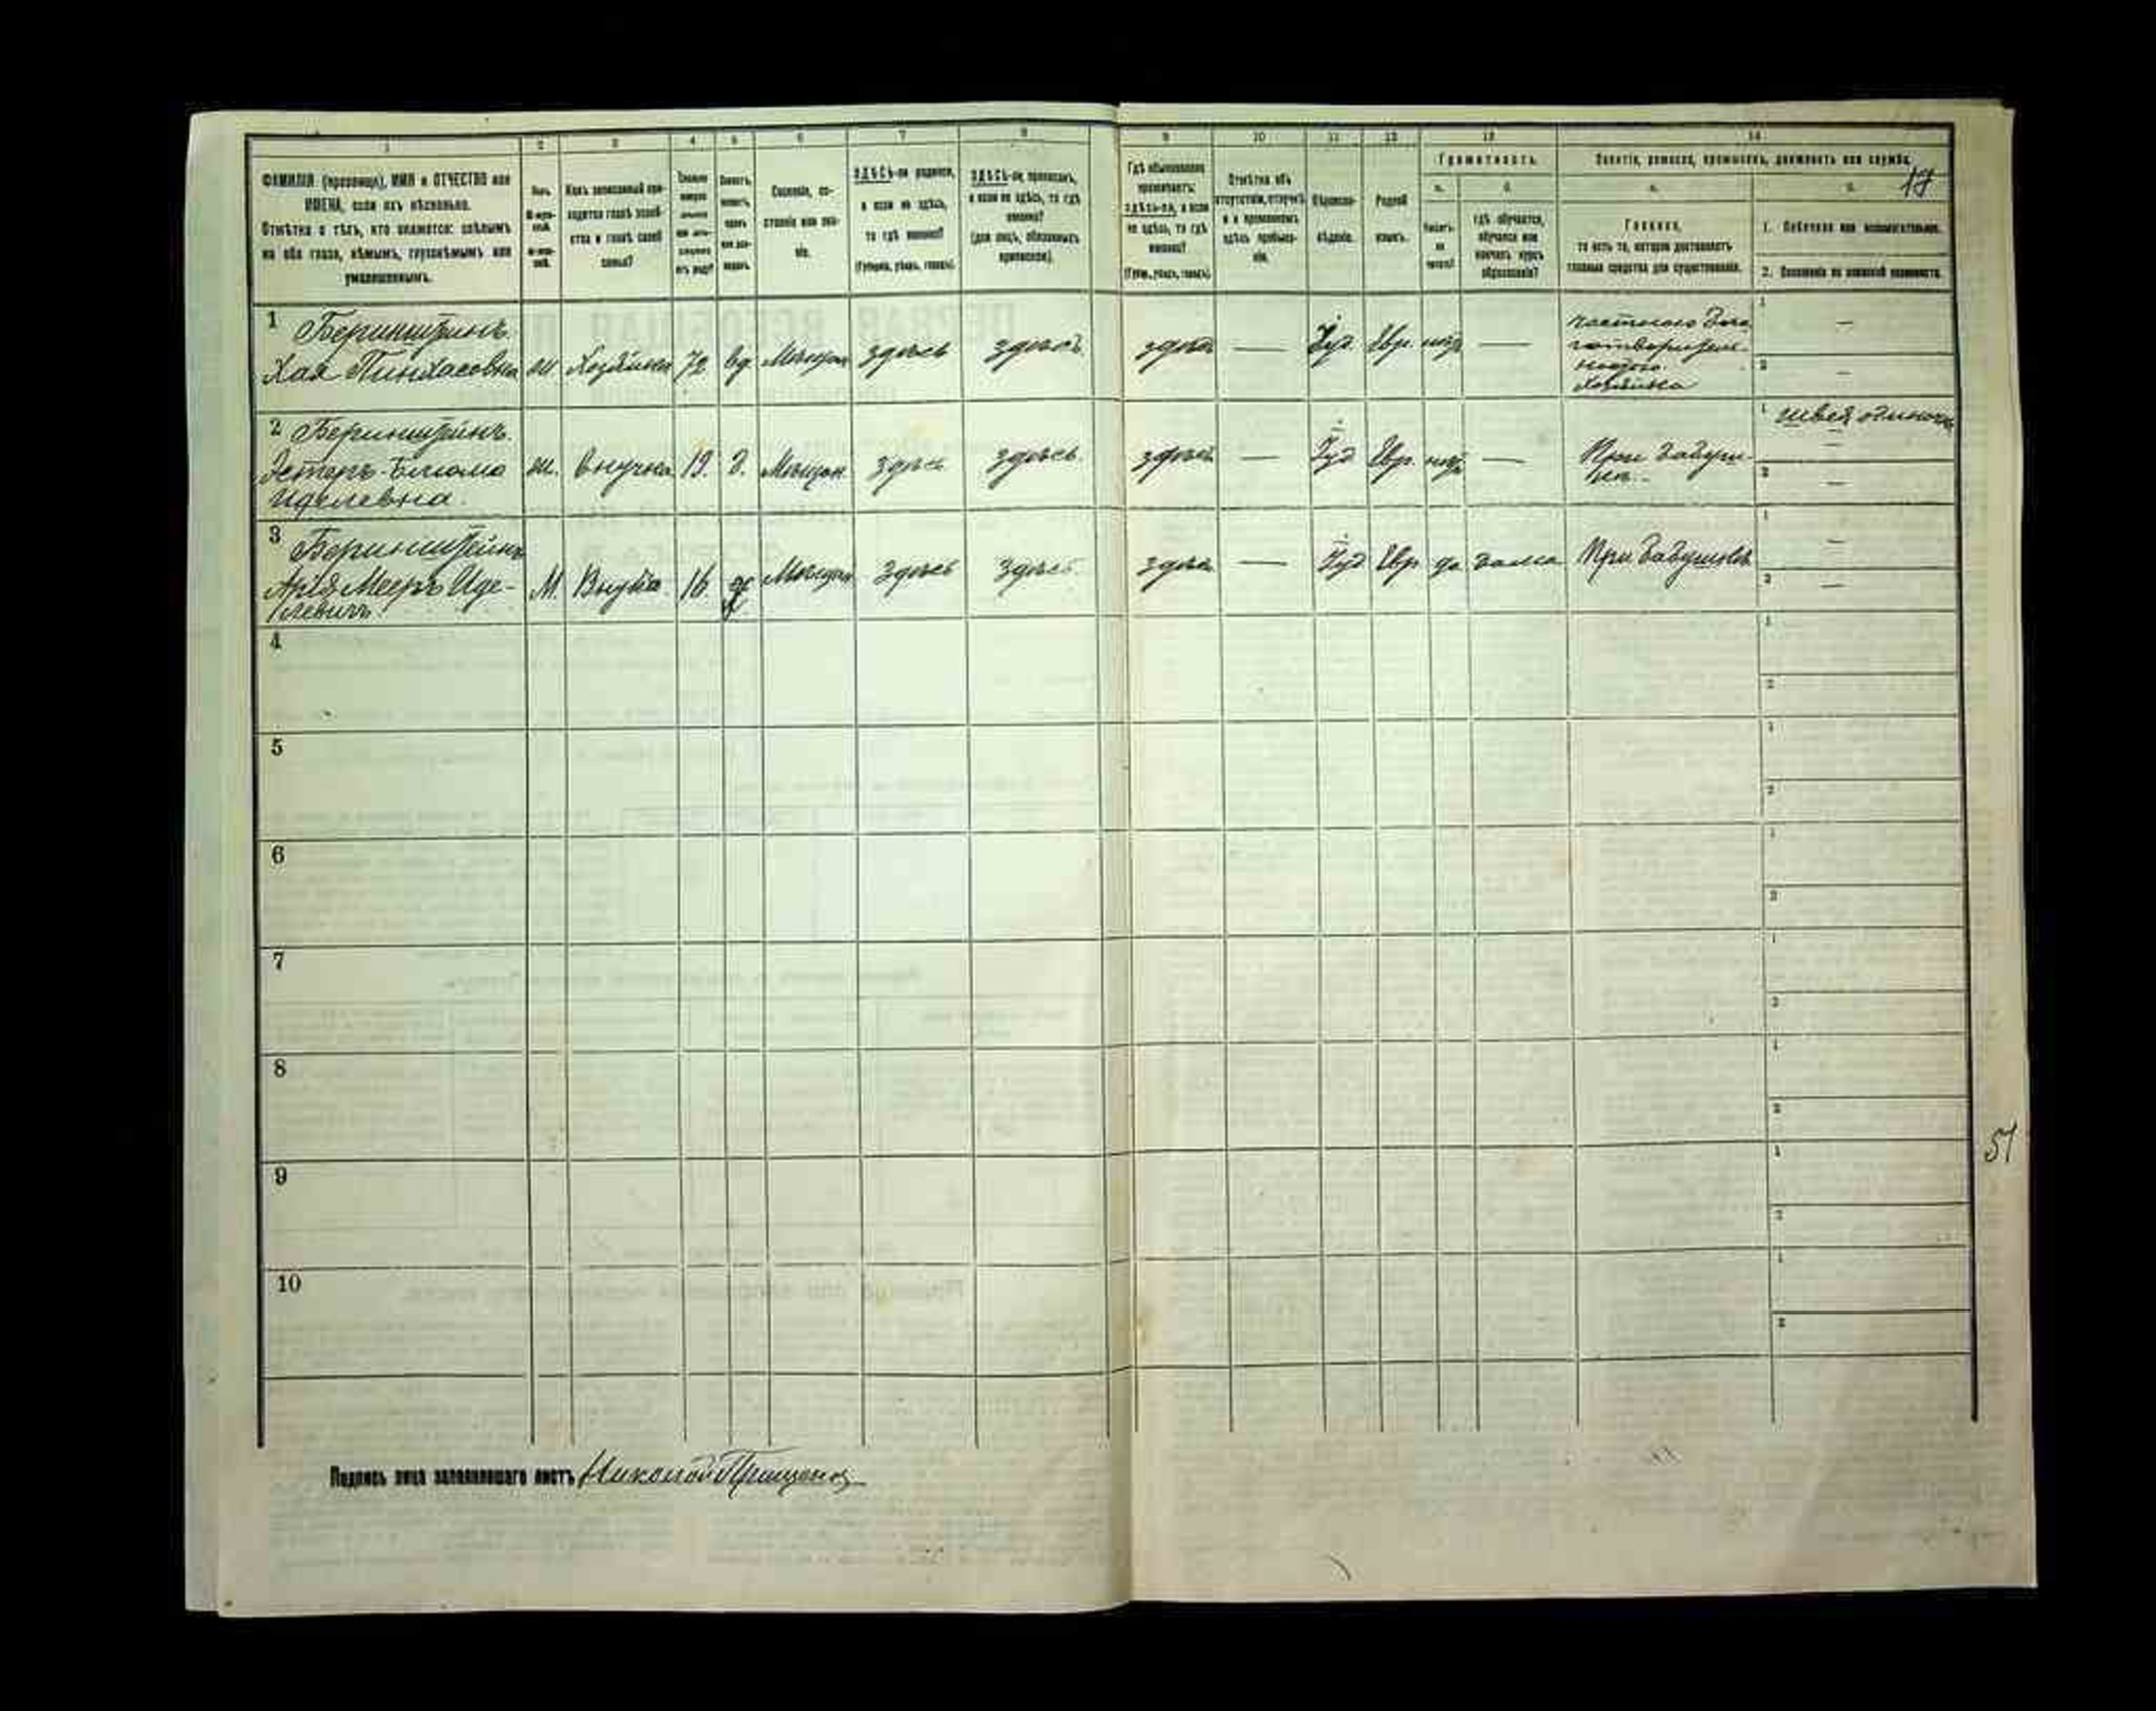 1
2
3
4
5
6
7
8
9
10
11
12
13
14
17
ФАМИЛІЯ (прозвище), ИМЯ и ОТЧЕСТВО или
ИМЕНА, если ихъ нѣсколько.
Отмѣтка о тѣхъ, кто окажется: слѣпымъ
на оба глаза, нѣмымъ, глухонѣмымъ или
умалишеннымъ.
Какъ записанный при-
ходится главѣ хозяй-
ства и главѣ своей
семьи?
Сословіе, со-
стояніе или зва-
ніе.
ЗДѢСЬ-ли родился,
а если не здѣсь,
то гдѣ именно?
(Губернія, уѣздъ, городъ).
ЗДѢСЬ-ли приписанъ,
а если не здѣсь, то гдѣ
именно?
(для лицъ, обязанныхъ
припиской).
Гдѣ обыкновенно
проживаетъ:
здѣсь-ли, а если
не здѣсь, то гдѣ
именно?
(Губ., уѣздъ, городъ).
Отмѣтка объ
отсутствіи, отлучкѣ
и о временномъ
здѣсь пребыва-
ніи.
Вѣроиспо-
вѣданіе.
Родной
языкъ.
Грамотность.
а.
б.
Умѣетъ-
ли
читать?
гдѣ обучается,
обучался или
кончилъ курсъ
образованія?
Занятіе, ремесло, промыселъ, должность или служба.
а.
б.
Главное,
то есть то, которое доставляетъ
главныя средства для существованія.
1. Побочное или вспомогательное.
2. Положеніе по воинской повинности.
1 Беринштейнъ
Хая Пинхасовна ж Хозяйка 72 вд Мѣщан здѣсь здѣсь здѣсь — Іуд. Евр. нѣт —
Хозяйка
1 —
2 —
2 Беринштейнъ.
Эстеръ-Блюма ж. Внучка 19. д. Мѣщан. здѣсь здѣсь. здѣсь — Іуд Евр. нѣт —
Иделевна.
При бабуш-
кѣ.
1 швея одиночка
—
2 —
3 Беринштейнъ
Арія Мееръ Иде- М. Внукъ 16 х Мѣщан здѣсь здѣсь здѣсь — Іуд Евр да дома При бабушкѣ
левичъ
1 —
2 —
4
1
2
5
1
2
6
1
2
7
1
2
8
1
2
9
1
2
10
1
2
51
Подпись лица заполнявшаго листъ Николай